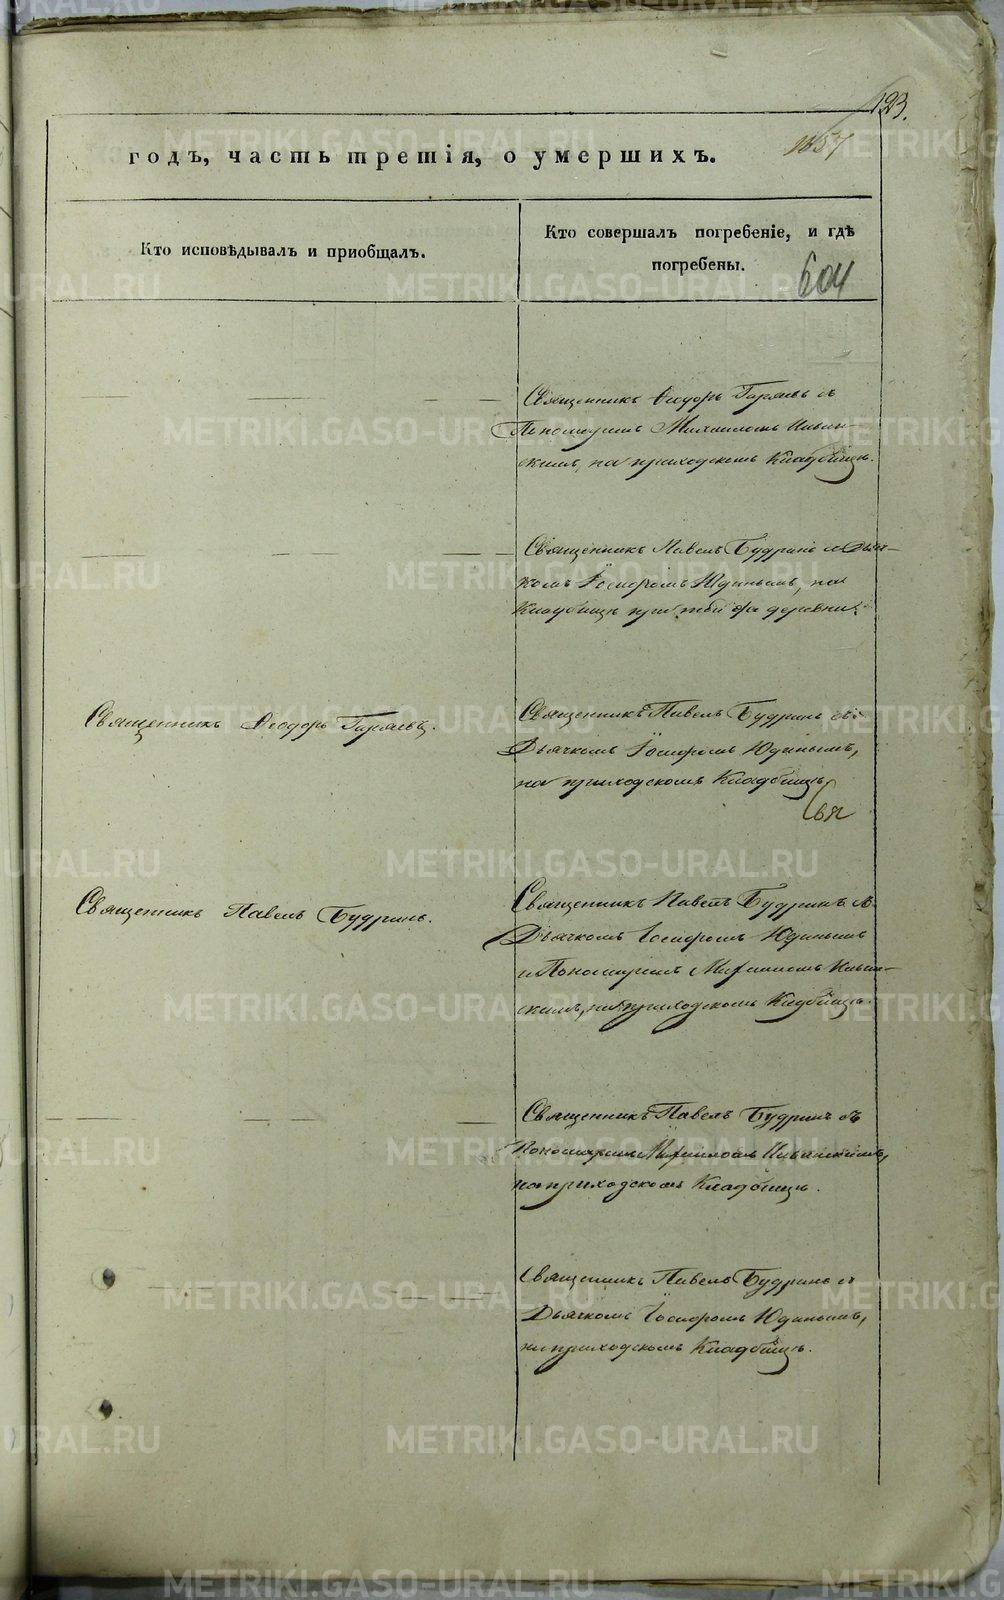 123.
годъ, часть третія, о умершихъ.
Кто исповѣдывалъ и пріобщалъ.
Кто совершалъ погребеніе, и гдѣ
погребены.
604
Священникъ Ѳеодоръ Гаряевъ съ
Пономаремъ Михаиломъ
скимъ, на приходскомъ Кладбищѣ.
Священникъ Павелъ Будринъ съ Дьяч-
комъ Іосифомъ Юдинымъ, на
Кладбищѣ при деревни.
Священникъ Ѳеодоръ Гаряевъ.
Священникъ Павелъ Будринъ съ
Дьячкомъ Іосифомъ Юдинымъ,
на приходскомъ Кладбищѣ.
Священникъ Павелъ Будринъ.
Священникъ Павелъ Будринъ съ
Дьячкомъ Іосифомъ Юдинымъ
и Пономаремъ Михаиломъ
скимъ, на приходскомъ Кладбищѣ.
Священникъ Павелъ Будринъ съ
Пономаремъ Михаиломъ
на приходскомъ Кладбищѣ.
Священникъ Павелъ Будринъ съ
Дьячкомъ Іосифомъ Юдинымъ,
на приходскомъ Кладбищѣ.
METRIKI.GASO-URAL.RU